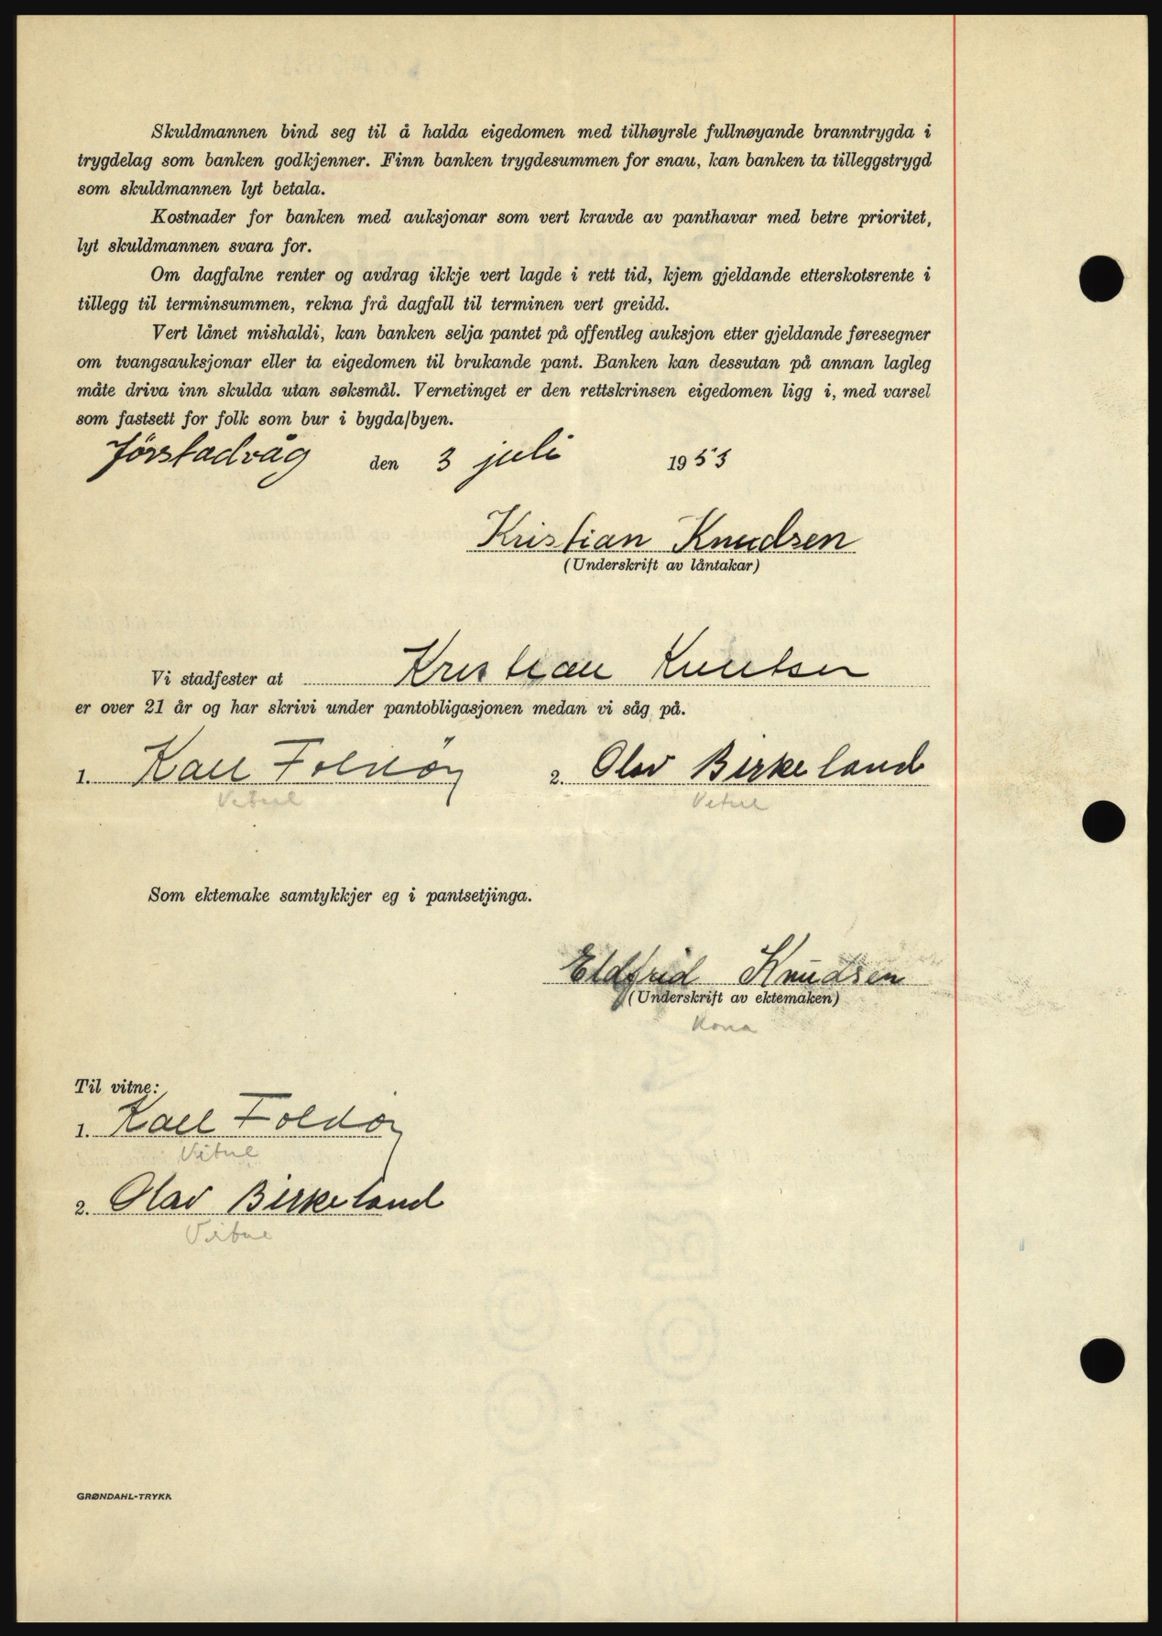 Skuldmannen bind seg til å halda eigedomen med tilhøyrsle fullnøyande branntrygda i
trygdelag som banken godkjenner. Finn banken trygdesummen for snau, kan banken ta tilleggstrygd
som skuldmannen lyt betala.
Kostnader for banken med auksjonar som vert kravde av panthavar med betre prioritet,
lyt skuldmannen svara for.
Om dagfalne renter og avdrag ikkje vert lagde i rett tid, kjem gjeldande etterskotsrente i
tillegg til terminsummen, rekna frå dagfall til terminen vert greidd.
Vert lånet mishaldi, kan banken selja pantet på offentleg auksjon etter gjeldande føresegner
om tvangsauksjonar eller ta eigedomen til brukande pant. Banken kan dessutan på annan lagleg
måte driva inn skulda utan søksmål. Vernetinget er den rettskrinsen eigedomen ligg i, med varsel
som fastsett for folk som bur i bygda/byen.
Jörstadvåg den 3 juli 1953
Kristian Knudsen
(Underskrift av låntakar)
Vi stadfester at Kristian Knutsen
er over 21 år og har skrivi under pantobligasjonen medan vi såg på.
1. Karl Foldöy 2. Olav Birkeland
Vitne Vitne
Som ektemake samtykkjer eg i pantsetjinga.
Eldfrid Knudsen
(Underskrift av ektemaken)
Kona
Til vitne:
1. Karl Foldöy
Vitne
2. Olav Birkeland
Vitne
GRØNDAHL-TRYKK